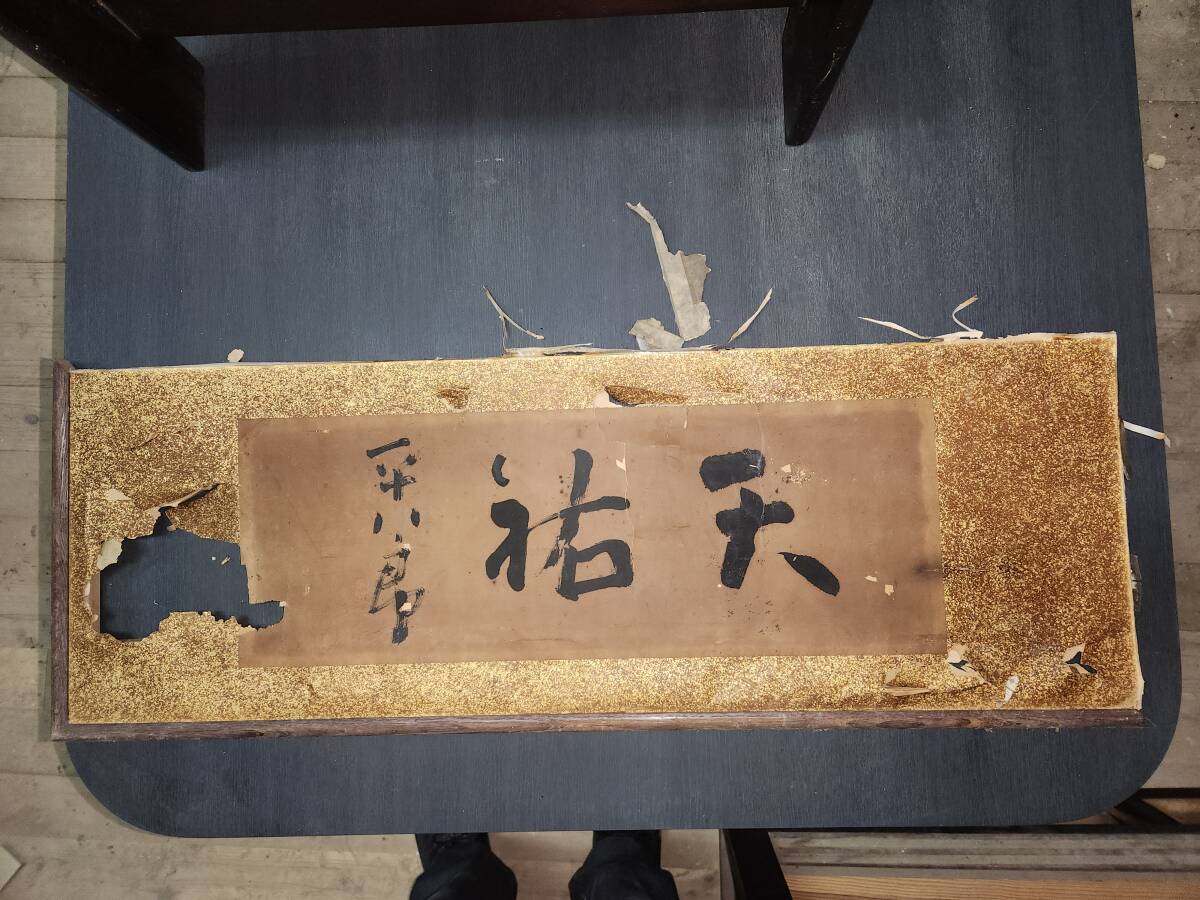 天祐
平八郎